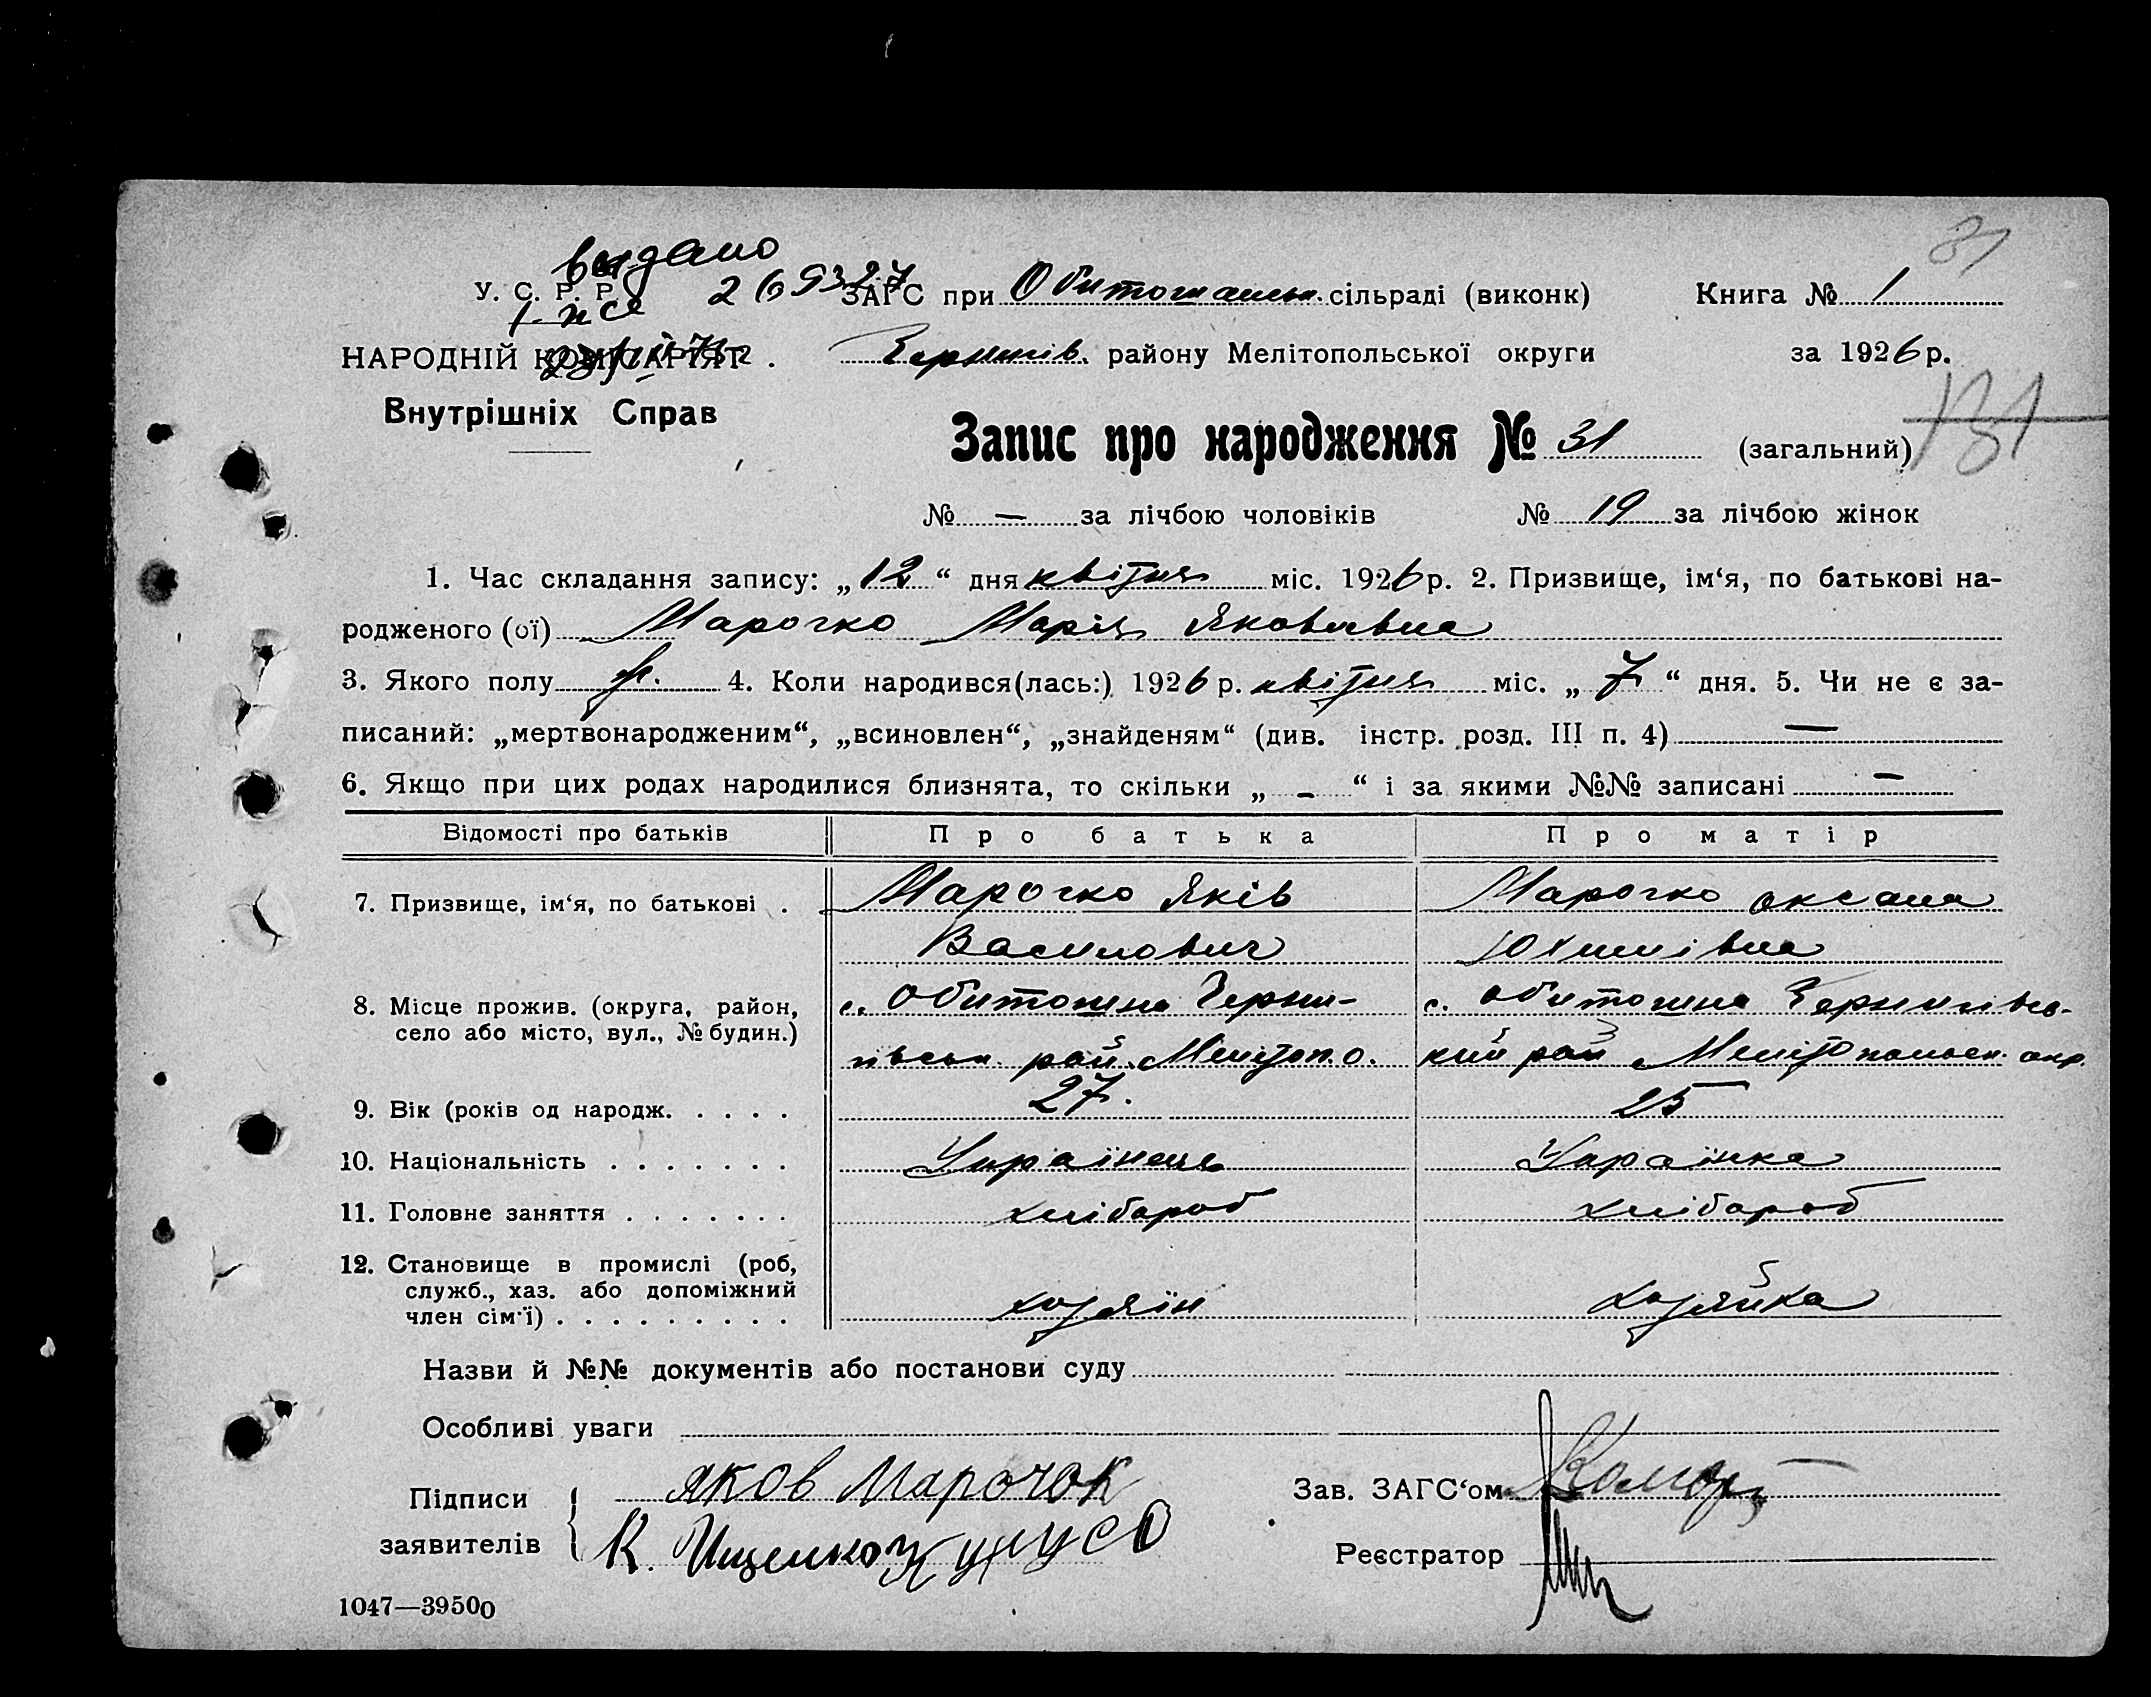 31
выдано
У. С. Р. Р. 269327 ЗАГС при Обиточанськ. сільраді (виконк) Книга № 1
НАРОДНІЙ КОМІСАРІЯТ . Чернигів. району Мелітопольської округи за 1926 р.
Внутрішніх Справ
Запис про народження № 31 (загальний) 131
№ — за лічбою чоловіків № 19 за лічбою жінок
1. Час складання запису: „12“ дня квітня міс. 1926 р. 2. Призвище, ім‘я, по батькові на-
родженого (ої) Марочко Марія Яковивна
3. Якого полу ж. 4. Коли народився(лась:) 1926 р. квітня міс. „7“ дня. 5. Чи не є за-
писаний: „мертвонародженим“, „всиновлен“, „знайденям“ (див. інстр. розд. III п. 4) —
6. Якщо при цих родах народилися близнята, то скільки „ – “ і за якими №№ записані –
Відомості про батьків Про батька Про матір
7. Призвище, ім‘я, по батькові . Марочко Яків Марочко Оксана
Василович Юхимівна
8. Місце прожив. (округа, район, с. Обиточна Черни- с. Обиточна Чернигівсь-
село або місто, вул., № будин.)
гівськ. рай. Меліт о. кий рай Мелітопольск. окр.
9. Вік (років од народж. . . . . 27. 25
10. Національність . . . . . . . Українець Українка
11. Головне заняття . . . . . . . хлібороб хлібороб
12. Становище в промислі (роб,
служб., хаз. або допоміжний
член сім‘ї) . . . . . . . . . хозяїн хозяйка
Назви й №№ документів або постанови суду
Особливі уваги
Підписи Яков Марочок Зав. ЗАГС‘ом
заявителів К. Ищенко Реєстратор
1047—39500